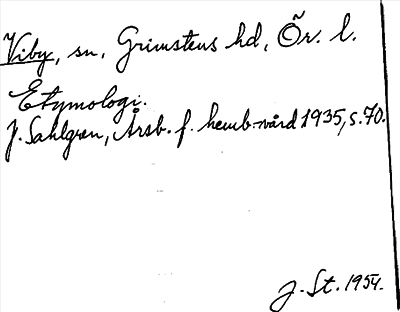 Viby, sn, Grimstens hd, Ör. l.
Etymologi.
J. Sahlgren, Årsb. f. hemb.-vård 1935, s. 70.
J. St. 1954.